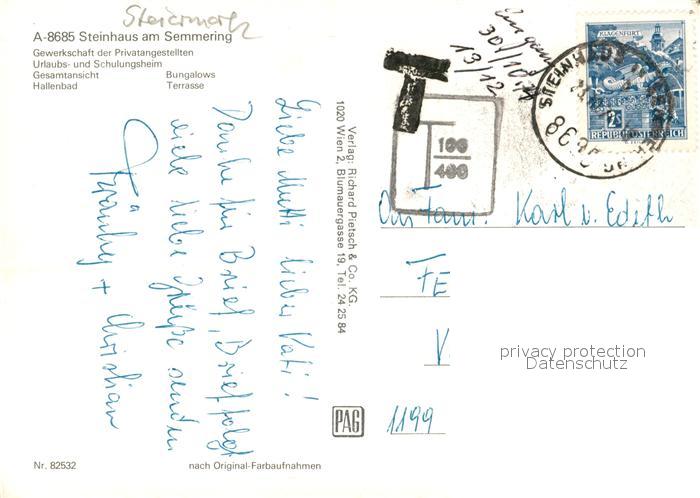 Steiermark
A-8685 Steinhaus am Semmering
Gewerkschaft der Privatangestellten
Urlaubs- und Schulungsheim
Gesamtansicht Bungalows
Hallenbad Terrasse
Liebe Mutti, lieber Vati!
Danke für Brief, Brief folgt
viele liebe Grüße senden
+ Christian
Verlag: Richard Pietsch & Co. KG.
1020 Wien 2, Blumauergasse 19, Tel. 24 25 84
PAG
Nr. 82532
nach Original-Farbaufnahmen
30/10
13/12
T
T 100
400
KLAGENFURT
2S
REPUBLIK ÖSTERREICH
STEINHAUS
An Fam. Karl u. Edith
FE
V.
1199
privacy protection
Datenschutz